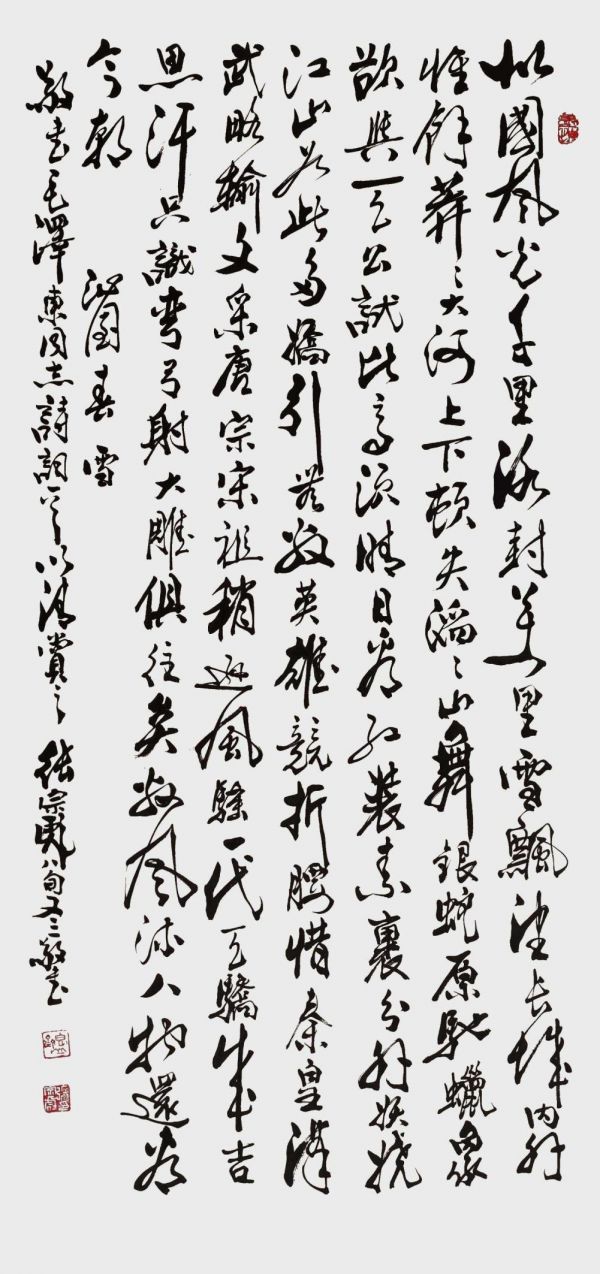 北國風光千里冰封萬里雪飄望長城內外
惟餘莽々大河上下頓失滔々山舞銀蛇原馳蠟象
欲與天公試比高須晴日看紅裝素裹分外妖嬈
江山如此多嬌引無數英雄競折腰惜秦皇漢
武略輸文采唐宗宋祖稍遜風騷一代天驕成吉
思汗只識彎弓射大雕俱往矣數風流人物還看
今朝 沁園春雪
敬書毛澤東同志詩詞一首以清賞之 張宗八旬又三敬書